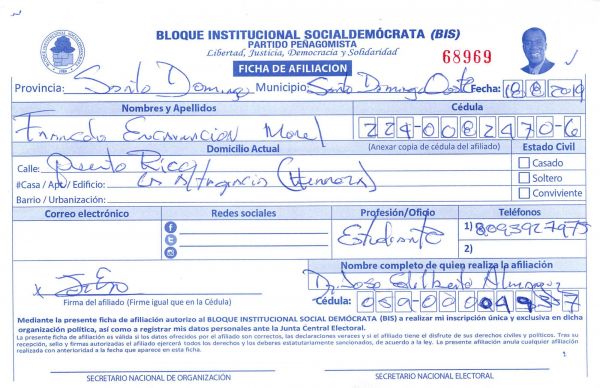 BLOQUE INSTITUCIONAL SOCIALDEMÓCRATA (BIS)
PARTIDO PEÑAGOMISTA
Libertad, Justicia, Democracia y Solidaridad
68969
FICHA DE AFILIACION
Provincia: Santo Domingo Municipio: Santo Domingo Oeste Fecha: 18/8/2019
Nombres y Apellidos Cédula
Encarnacion Morel 224-0082470-6
Domicilio Actual (Anexar copia de cédula del afiliado) Estado Civil
Calle: Puerto Rico Casado
#Casa / Apt / Edificio: (Herrera) Soltero
Barrio / Urbanización: Conviviente
Correo electrónico Redes sociales Profesión/Oficio Teléfonos
Estudiante 1) 8093927975
2)
Nombre completo de quien realiza la afiliación
x Dr. Jose Edilberto
Firma del afiliado (Firme igual que en la Cédula) Cédula: 059-000
Mediante la presente ficha de afiliación autorizo al BLOQUE INSTITUCIONAL SOCIAL DEMÓCRATA (BIS) a realizar mi inscripción única y exclusiva en dicha
organización política, así como a registrar mis datos personales ante la Junta Central Electoral.
La presente ficha de afiliación es válida si los datos ofrecidos por el afiliado son correctos, las declaraciones veraces y si el afiliado tiene el disfrute de sus derechos civiles y políticos. Tras su
recepción, sello y firmas autorizadas el afiliado ejercerá todos los derechos y los deberes estatutariamente sancionados, de acuerdo a la ley. La presente afiliación anula cualquier afiliación
realizada con anterioridad a la fecha que aparece en esta ficha.
SECRETARIO NACIONAL DE ORGANIZACIÓN SECRETARIO NACIONAL ELECTORAL